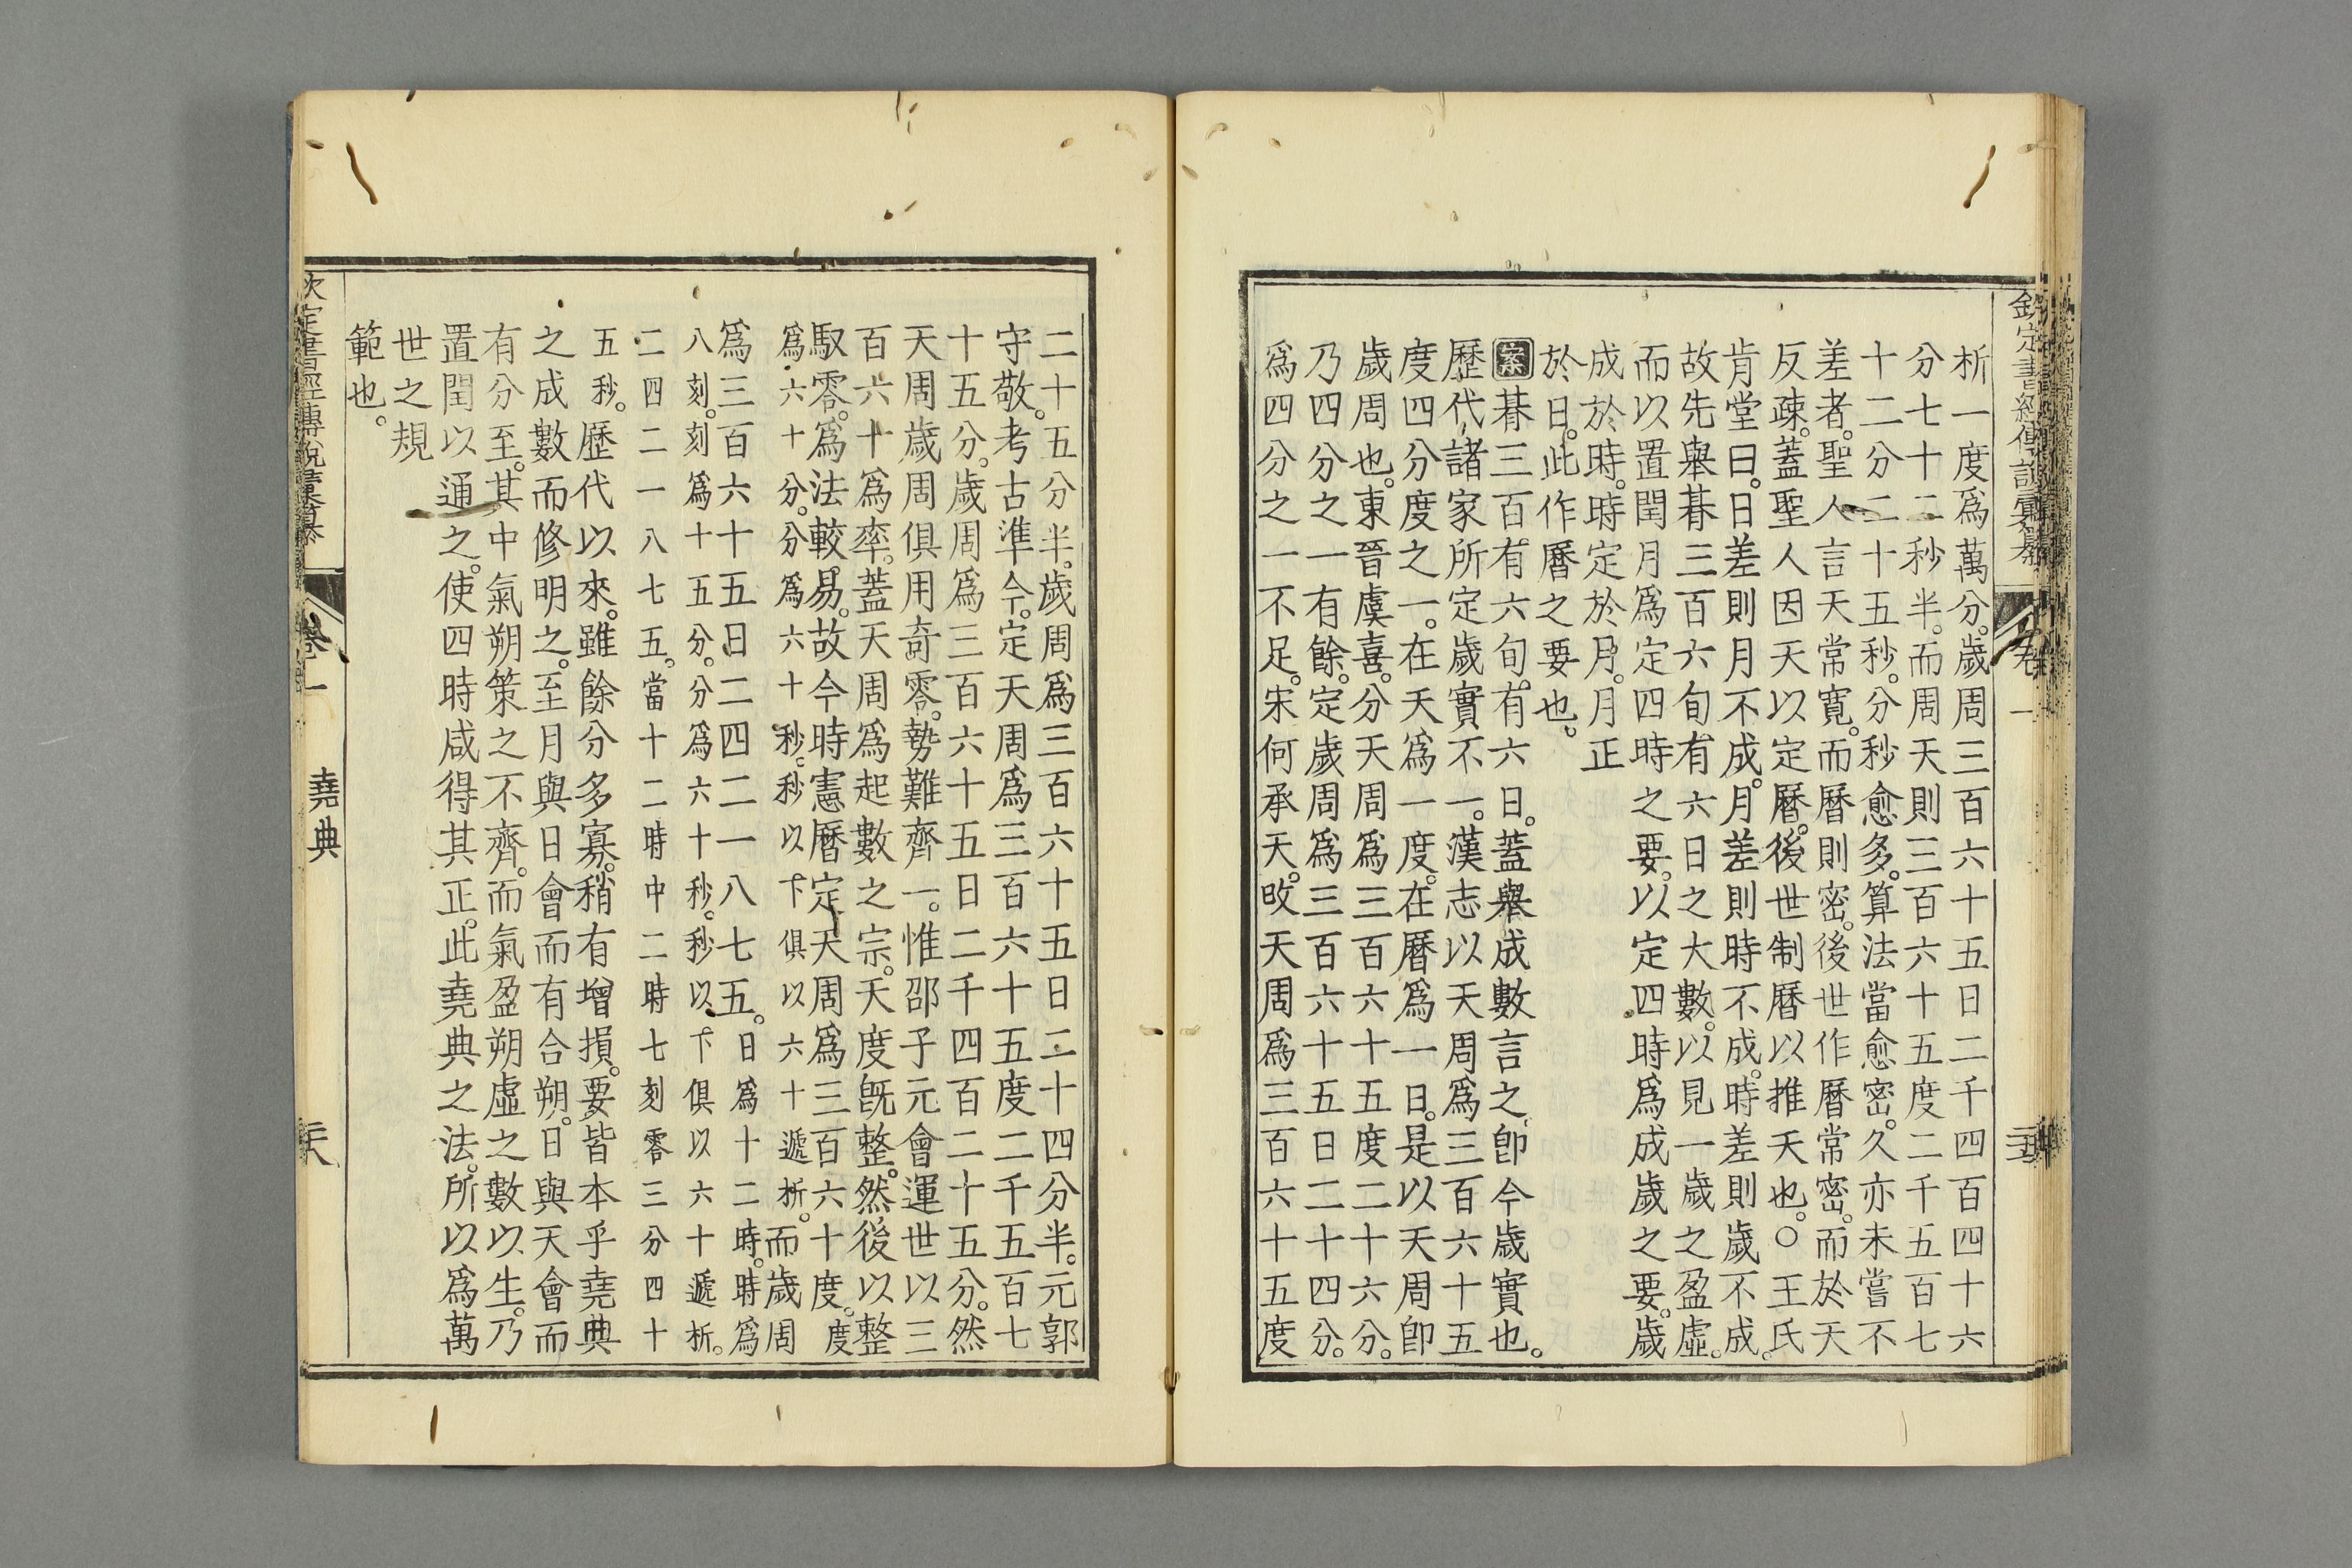 欽定書經傳說彙纂
卷一
析一度爲萬分。歲周三百六十五日二千四百四十六
分七十二秒半。而周天則三百六十五度二千五百七
十二分二十五秒。分秒愈多。算法當愈密。久亦未嘗不
差者。聖人言天常寬。而曆則密。後世作曆常密。而於天
反疎。蓋聖人因天以定曆。後世制曆以推天也。○王氏
肯堂曰。日差則月不成。月差則時不成。時差則歲不成。
故先舉朞三百六旬有六日之大數。以見一歲之盈虛。
而以置閏月爲定四時之要。以定四時爲成歲之要。歲
成於時。時定於月。月正
於日。此作曆之要也。
案朞三百有六旬。有六日。蓋舉成數言之。卽今歲實也。
歷代諸家所定歲實不一。漢志以天周爲三百六十五
度四分度之一。在天爲一度。在曆爲一日。是以天周卽
歲周也。東晉虞喜。分天周爲三百六十五度二十六分。
乃四分之一有餘。定歲周爲三百六十五日二十四分。
爲四分之一不足。宋何承天。攺天周爲三百六十五度
二十五分半。歲周爲三百六十五日二十四分半。元郭
守敬。考古準今。定天周爲三百六十五度二千五百七
十五分。歲周爲三百六十五日二千四百二十五分。然
天周歲周俱用奇零。勢難齊一。惟邵子元會運世以三
百六十爲率。蓋天周爲起數之宗。天度旣整。然後以整
馭零。爲法較易。故今時憲曆定天周爲三百六十度。度
爲六十分。分爲六十秒。秒以下俱以六十遞析。而歲周
爲三百六十五日二四二一八七五。日爲十二時。時爲
八刻。刻爲十五分。分爲六十秒。秒以下俱以六十遞析。
二四二一八七五。當十二時中二時七刻零三分四十
五秒。歷代以來。雖餘分多寡。稍有增損。要皆本乎堯典
之成數而修明之。至月與日會而有合朔。日與天會而
有分至。其中氣朔策之不齊。而氣盈朔虛之數以生。乃
置閏以通之。使四時咸得其正。此堯典之法。所以爲萬
世之規
範也。
欽定書經傳說彙纂
卷一
堯典